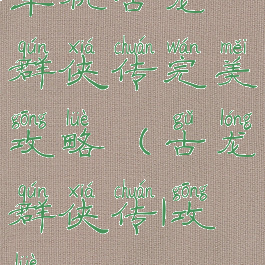 qún xiá chuán wán měi
群侠传完美
gōng lüè gǔ lóng
攻略（古龙
qún xiá chuán gōng
群侠传|攻
lüè